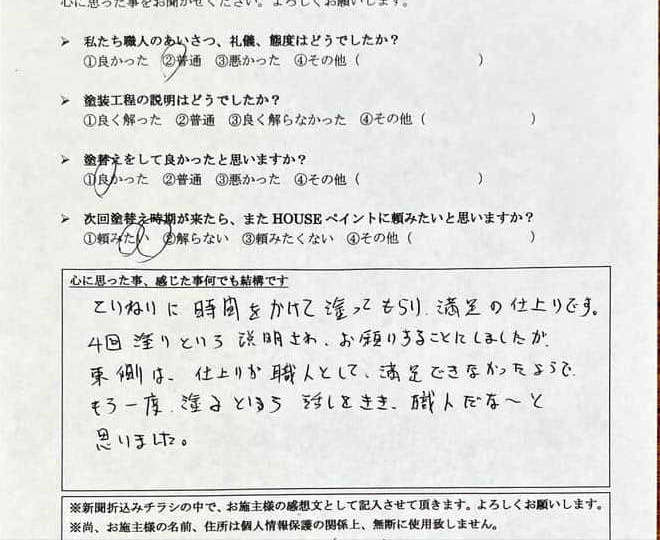 心に思った事をお聞かせください。よろしくお願いします。
➢ 私たち職人のあいさつ、礼儀、態度はどうでしたか？
①良かった ②普通 ③悪かった ④その他（ ）
➢ 塗装工程の説明はどうでしたか？
①良く解った ②普通 ③良く解らなかった ④その他（ ）
➢ 塗替えをして良かったと思いますか？
①良かった ②普通 ③悪かった ④その他（ ）
➢ 次回塗替え時期が来たら、また HOUSE ペイントに頼みたいと思いますか？
①頼みたい ②解らない ③頼みたくない ④その他（ ）
心に思った事、感じた事何でも結構です
ていねいに 時間をかけて塗ってもらい、満足の仕上りです。
4回塗りという説明され、お願いすることにしましたが、
東側は、仕上りが職人として、満足できなかったようで、
もう一度、塗るという話しをきき、職人だな〜と
思いました。
※新聞折込みチラシの中で、お施主様の感想文として記入させて頂きます。よろしくお願いします。
※尚、お施主様の名前、住所は個人情報保護の関係上、無断に使用致しません。